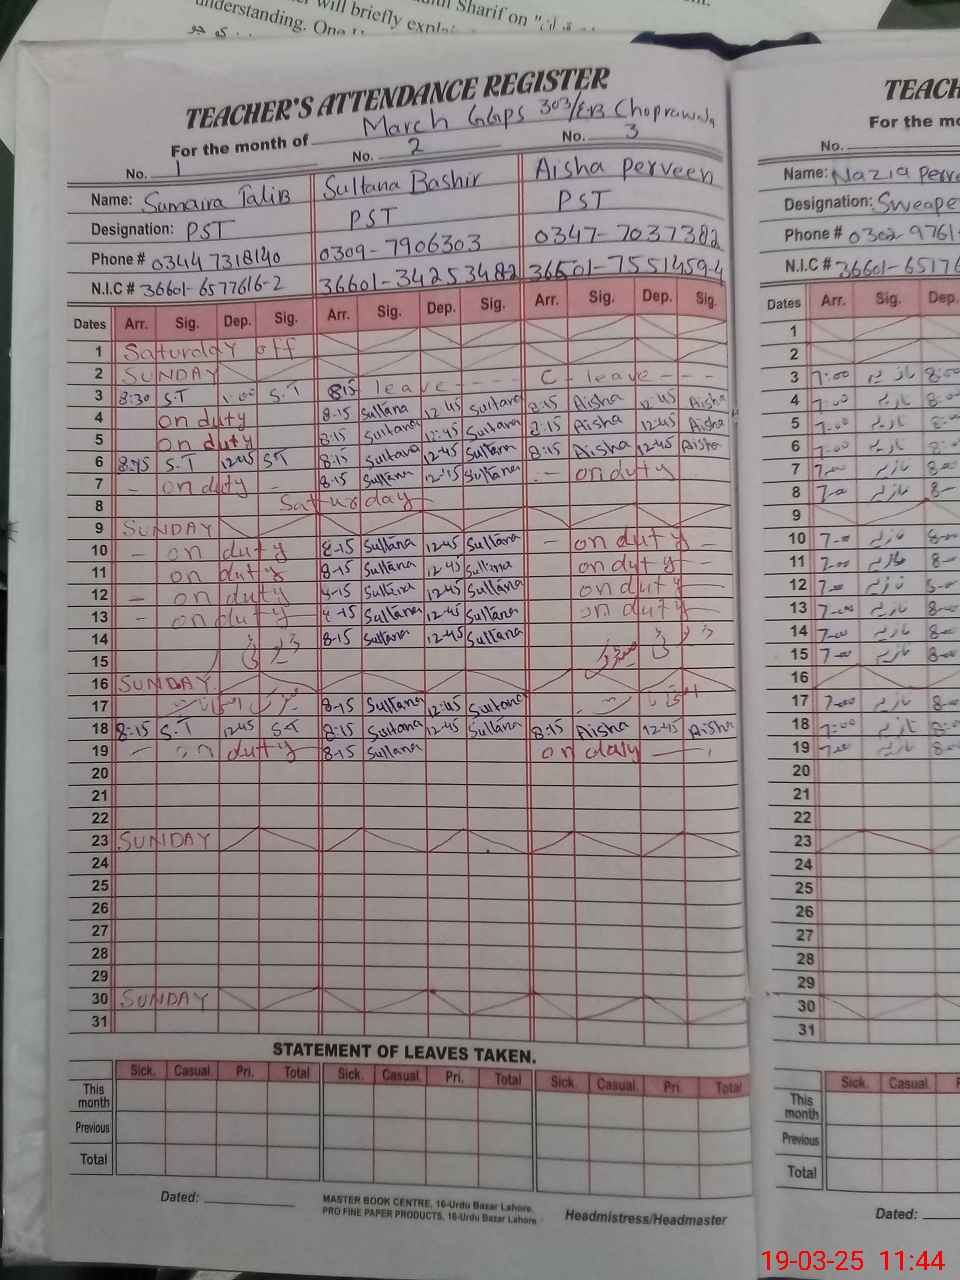 will briefly explain
Sharif on "
understanding.
TEACHER'S ATTENDANCE REGISTER
For the month of March GGPS 303/EB Choprawala
No. 1 No. 2 No. 3
Name: Sumaira Talib Sultana Bashir Aisha Perveen
Designation: PST PST PST
Phone # 0344 7318140 0309-7906303 0347-7037382
N.I.C # 36601-6577616-2 36601-34253482 36501-7551459-4
Dates Arr. Sig. Dep. Sig. Arr. Sig. Dep. Sig. Arr. Sig. Dep. Sig.
1 Saturday off
2 SUNDAY
3 8:30 S.T 1:00 S.T 8:15 leave - - - - C- leave - - -
4 on duty 8-15 Sultana 12:45 Sultana 8-15 Aisha 12:45 Aisha
5 on duty 8:15 Sultana 12:45 Sultana 8:15 Aisha 12:45 Aisha
6 8:15 S.T 12:45 S.T 8:15 Sultana 12:45 Sultana 8:15 Aisha 12-45 Aisha
7 - on duty - 8-15 Sultana Sultana - on duty
8 Saturday
9 SUNDAY
10 - on duty 8-15 Sultana 12-45 Sultana - on duty -
11 on duty 8-15 Sultana 12-45 Sultana on duty
12 - on duty Sultana 12-45 Sultana on duty
13 - on duty Sultana 12-45 Sultana on duty
14 8-15 Sultana 12-45 Sultana
15
16 SUNDAY
17 8-15 Sultana 12:45 Sultana
18 8:15 S.T 12:45 S.T 8:15 Sultana 12-45 Sultana 8:15 Aisha 12:45 Aisha
19 - on duty 8-15 Sultana on duty
20
21
22
23 SUNDAY
24
25
26
27
28
29
30 SUNDAY
31
STATEMENT OF LEAVES TAKEN.
Sick. Casual. Pri. Total Sick. Casual. Pri. Total Sick. Casual. Pri. Total
This month
Previous
Total
Dated:
MASTER BOOK CENTRE, 16-Urdu Bazar Lahore.
PRO FINE PAPER PRODUCTS, 16-Urdu Bazar Lahore
Headmistress/Headmaster
TEACH
For the mo
No.
Name: Nazia Perve
Designation: Sweape
Phone # 0302-9761
N.I.C # 36601-65176
Dates Arr. Sig. Dep.
1
2
3 7:00 نازیہ 8:00
4 7:00 نازیہ 8:00
5 7-00 نازیہ 8:00
6 7-00 نازیہ 8:00
7 7-00 نازیہ 8-00
8 7-00 نازیہ 8-
9
10 7-00 نازیہ 8-
11 7-00 نازیہ 8-
12 7-00 نازیہ
13 7-00 نازیہ 8-00
14 7-00 نازیہ 8-00
15 7-00 نازیہ 8-00
16
17 7-00 نازیہ 8-00
18 7:00 نازیہ 8:00
19 7-00 نازیہ 8-00
20
21
22
23
24
25
26
27
28
29
30
31
Sick. Casual
This month
Previous
Total
Dated:
19-03-25 11:44